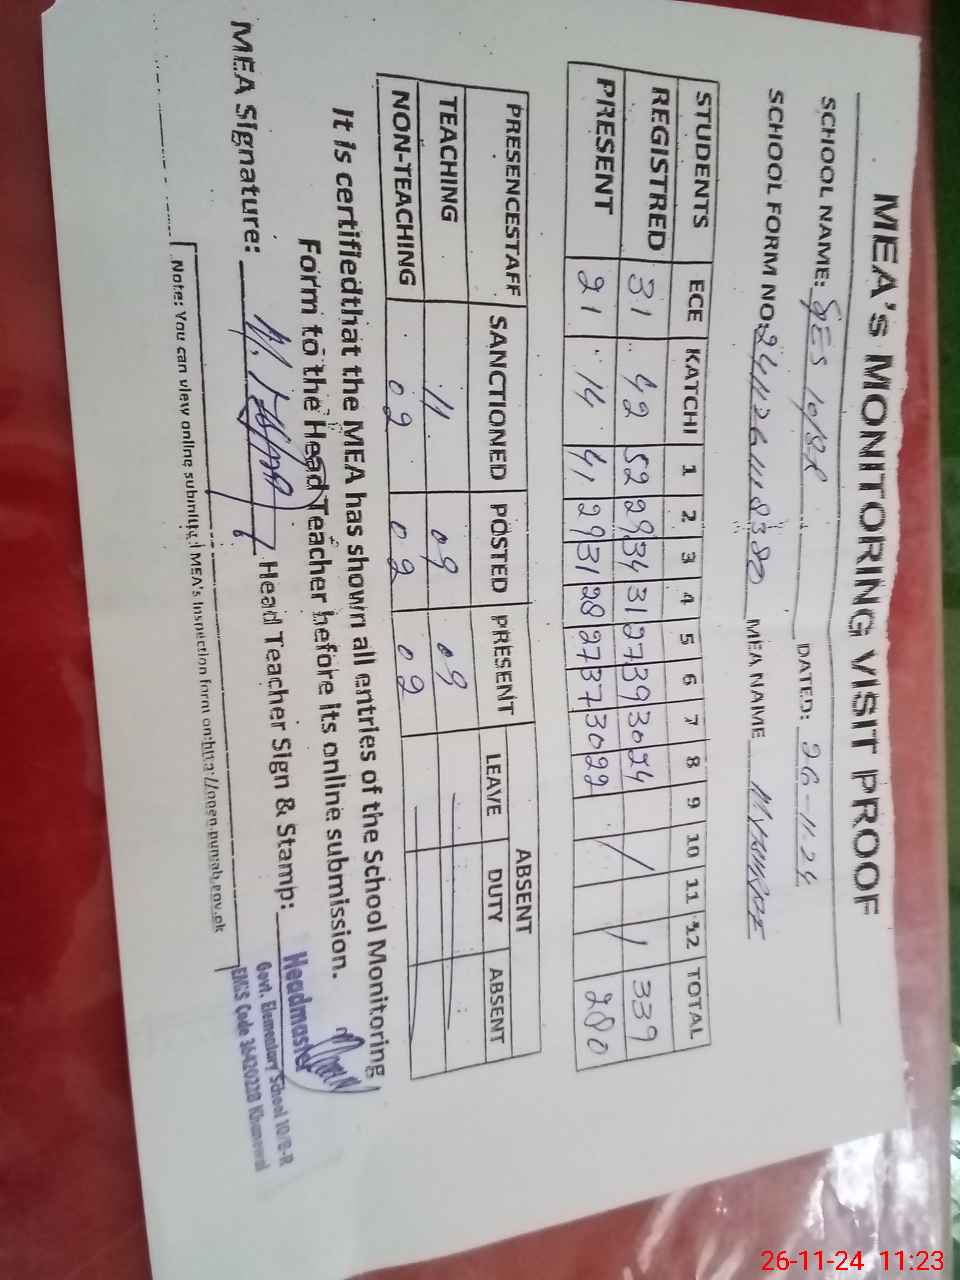 MEA'S MONITORING VISIT PROOF
SCHOOL NAME: GES 10/8R DATED: 26-11-24
SCHOOL FORM NO: MEA NAME
STUDENTS ECE KATCHI 1 2 3 4 5 6 7 8 9 10 11 12 TOTAL
REGISTRED 31 42 52 29 34 31 27 39 30 24 339
PRESENT 21 14 41 29 31 28 27 37 30 22 280
PRESENCESTAFF SANCTIONED POSTED PRESENT ABSENT
LEAVE DUTY ABSENT
TEACHING 11 09 09
NON-TEACHING 02 02 02
It is certifiedthat the MEA has shown all entries of the School Monitoring
Form to the Head Teacher before its online submission.
MEA Signature: Head Teacher Sign & Stamp:
Headmaster
Govt. Elementary School 10/8-R
EMIS Code Khanewal
Note: You can view online submitted MEA's Inspection form on:http://open.punjab.gov.pk
26-11-24 11:23